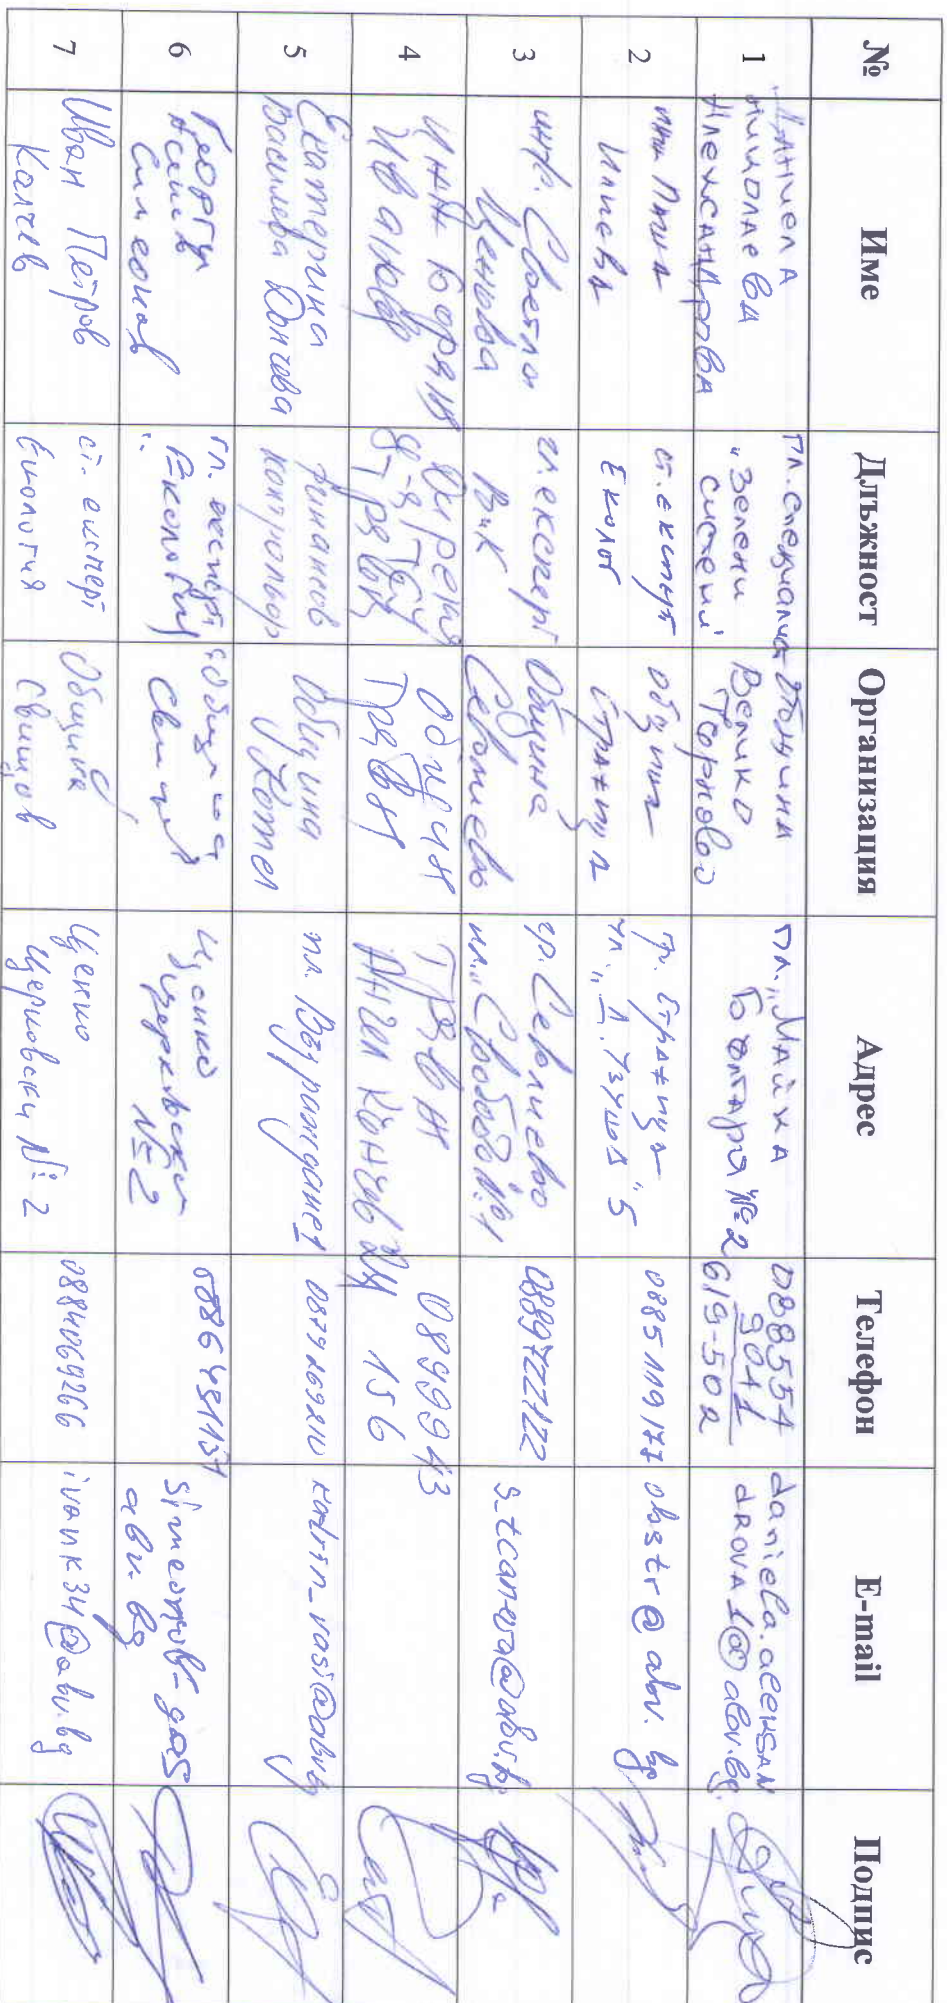 № Име Длъжност Организация Адрес Телефон E-mail Подпис
1
Даниела
Николаева
Александрова
гл. специалист
"Зелени
системи"
Община
Велико
Търново
пл. "Майка
България" №2
088554
9041
619-502
daniela.aleksan
drova1@abv.bg
2
инж.
Илиева
ст. експерт
Еколог
Община
Стражица
гр. Стражица
ул. "Д. Узунов" 5
0885119177
obstr@abv.bg
3
инж. Светла
Ценова
гл. експерт
ВиК
Община
Севлиево
гр. Севлиево
пл. "Свобода" №1
0889722122
s_tcaneva@abv.bg
4
инж. Боряна
Иванова
Община
Трявна
Трявна
Ангел Кънчев 21
0899943
156
5
Екатерина
Василева Дончева
финансов
контрольор
Община
Котел
пл. Възраждане 1
katrin_vasi@abv.bg
6
Георги
Асенов
Симеонов
гл. експерт
"Екология"
Община
Свищов
Цанко
Церковски
№2
simeonov_gas
abv.bg
7
Иван Петров
Калчев
ст. експерт
Екология
Община
Свищов
Цанко
Церковски №2
0884069266
ivank34@abv.bg